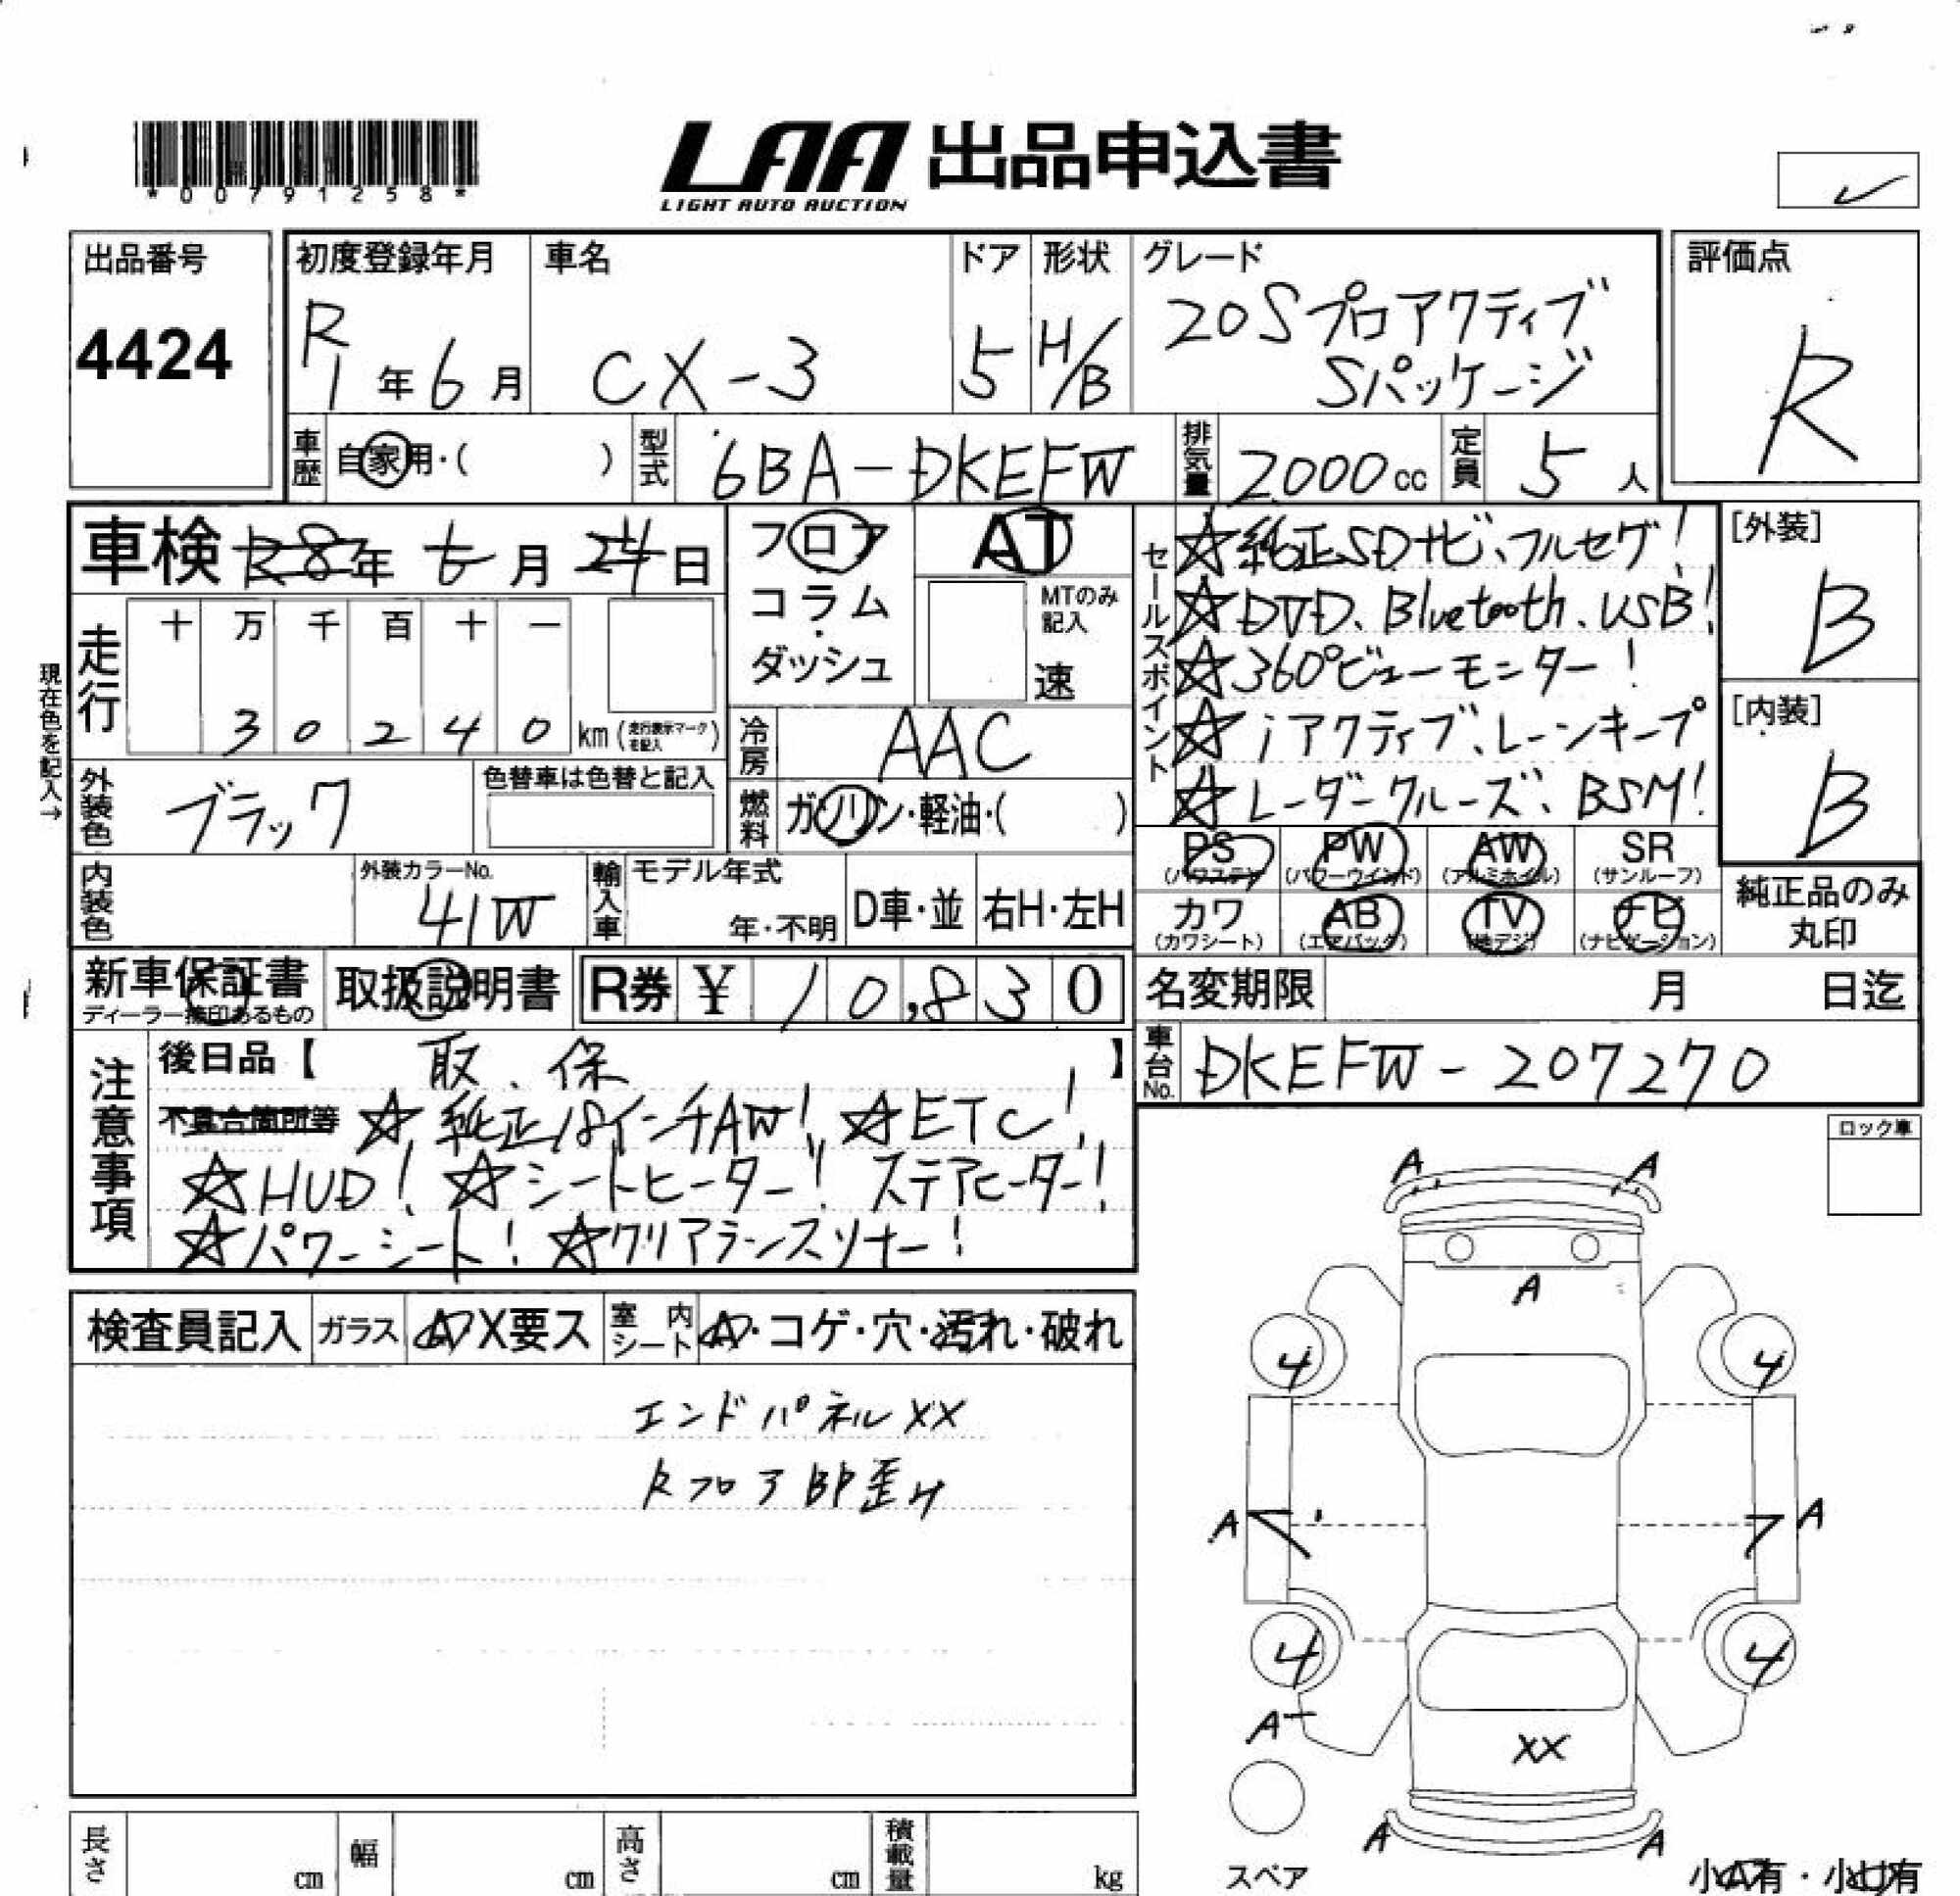 *00791258*
LAA 出品申込書
LIGHT AUTO AUCTION
出品番号
4424
初度登録年月
R1年6月
車名
CX-3
ドア
5
形状
H/B
グレード
20Sプロアクティブ
Sパッケージ
評価点
R
車歴
自家用・( )
型式
6BA-DKEFW
排気量
2000cc
定員
5人
車検 R8年 6月 24日
走行
十 万 千 百 十 一
3 0 2 4 0 km (走行表示マークを記入)
現在色を記入→
フロア
コラム
・
ダッシュ
AT
MTのみ記入
速
冷房
AAC
燃料
ガソリン・軽油・( )
外装色
ブラック
色替車は色替と記入
内装色
外装カラーNo.
41W
輸入車
モデル年式
年・不明
D車・並
右H・左H
セールスポイント
☆純正SDナビ、フルセグ!
☆DVD、Bluetooth、USB!
☆360°ビューモニター!
☆iアクティブ、レーンキープ
☆レーダークルーズ、BSM!
[外装]
B
[内装]
B
PS (パワステ)
PW (パワーウインド)
AW (アルミホイル)
SR (サンルーフ)
カワ (カワシート)
AB (エアバック)
TV (地デジ)
ナビ (ナビゲーション)
純正品のみ
丸印
新車保証書
ディーラー捺印あるもの
取扱説明書
R券 ¥ 10,830
名変期限 月 日迄
車台No.
DKEFW-207270
注意事項
後日品【 取、保 】
不具合箇所等 ☆純正18インチAW! ☆ETC!
☆HUD! ☆シートヒーター! ステアヒーター!
☆パワーシート! ☆クリアランスソナー!
ロック車
検査員記入
ガラス
A X要ス
室内シート
A・コゲ・穴・汚れ・破れ
エンドパネルXX
RフロアBP歪み
A A
A
4 4
A A
4 4
A
XX
A A
スペア
小A有・小U有
長さ cm
幅 cm
高さ cm
積載量 kg